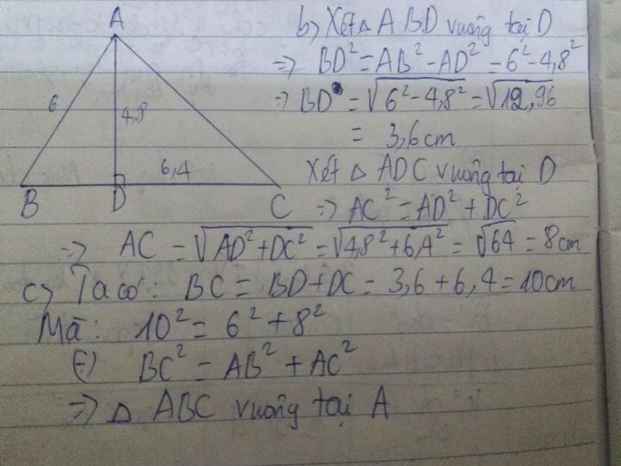 A
6
4,8
6,4
B
D
C
b) Xét △ ABD vuông tại D
=> BD² = AB² - AD² = 6² - 4,8²
=> BD = √6² - 4,8² = √12,96
= 3,6cm
Xét △ ADC vuông tại D
=> AC² = AD² + DC²
=> AC = √AD² + DC² = √4,8² + 6,4² = √64 = 8cm
c) Ta có: BC = BD + DC = 3,6 + 6,4 = 10cm
Mà: 10² = 6² + 8²
(=) BC² = AB² + AC²
=> △ ABC vuông tại A